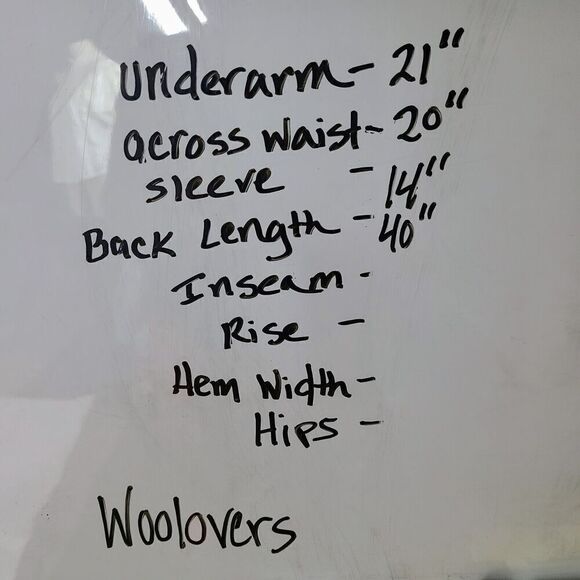 underarm - 21"
across waist - 20"
sleeve - 14"
Back Length - 40"
Inseam -
Rise -
Hem Width -
Hips -
Woolovers